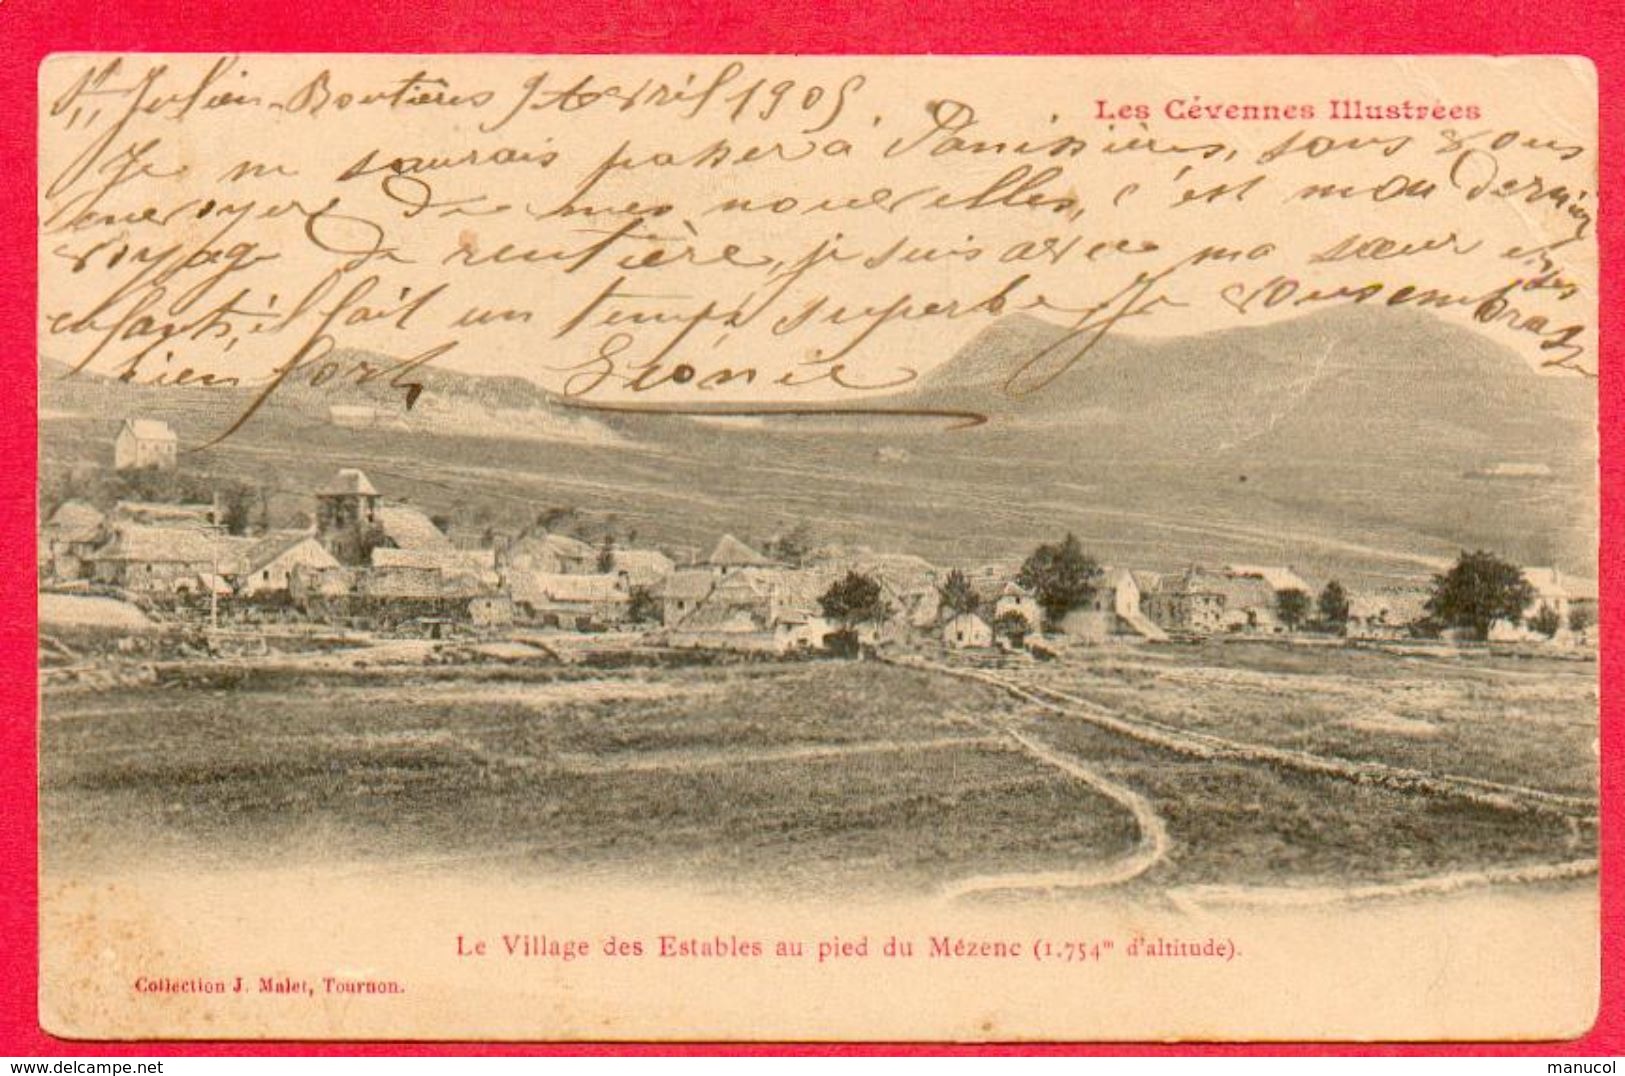 St Julien-Boutières 9 Avril 1905.
Les Cévennes Illustrées
Je ne saurais passer à Panissières, sans vous
envoyer de mes nouvelles, c'est mon dernier
voyage de rentière, je suis avec ma sœur et ses
enfants, il fait un temps superbe Je vous embrasse
bien fort Léonie
Le Village des Estables au pied du Mézenc (1.754m d'altitude).
Collection J. Malet, Tournon.
www.delcampe.net
manucol